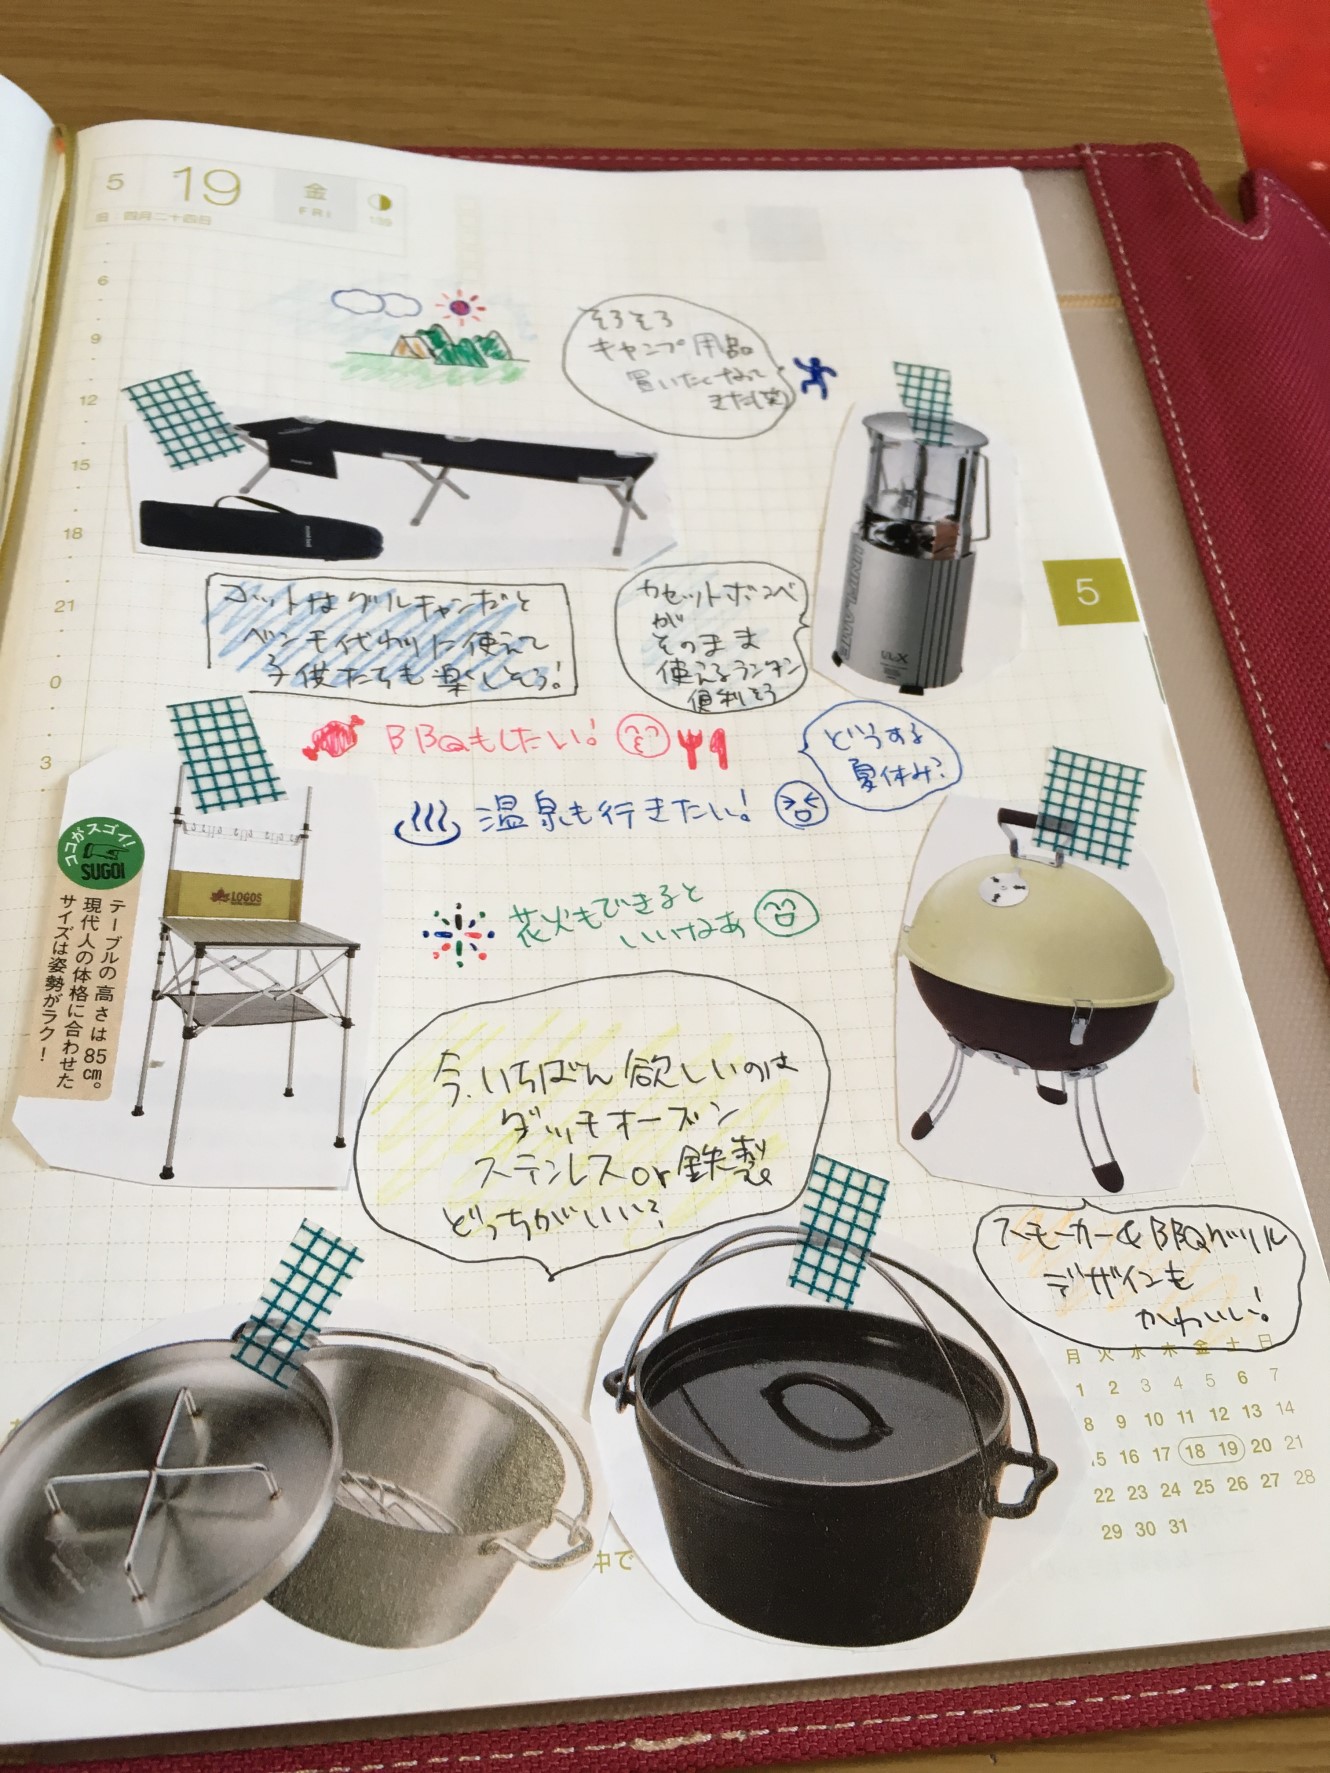 5 19 金
FRI
旧 四月二十四日
139
6
9
12
15
18
21
0
3
そろそろ
キャンプ用品
置いたくなって
きた(笑)
コットはグルキャンだと
ベンチ代わりに使えて
子供たちも楽しそう!
カセットボンベ
が
そのまま
使えるランタン
便利そう
UNIFLAME
UL-X
5
BBQもしたい!
どうする
夏休み?
温泉も行きたい!
花火もできると
いいなぁ
ココがスゴイ!
SUGOI
テーブルの高さは85cm。
現代人の体格に合わせた
サイズは姿勢がラク!
LOGOS
今、いちばん欲しいのは
ダッチオーブン
ステンレスor鉄製
どっちがいい?
スモーカー&BBQグリル
デザインも
かわいい!
月 火 水 木 金 土 日
1 2 3 4 5 6 7
8 9 10 11 12 13 14
15 16 17 18 19 20 21
22 23 24 25 26 27 28
29 30 31
中で